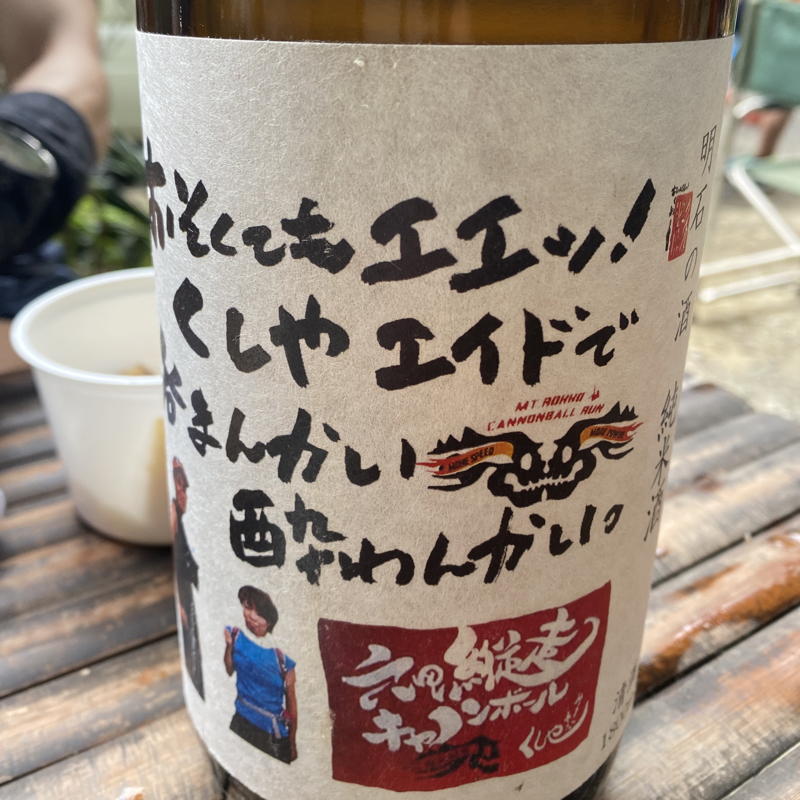 おそくてもエエッ!
くしやエイドで
呑まんかい
酔わんかい。
MT ROKKO
CANNONBALL RUN
MORE SPEED
MORE POWER
六甲縦走
キャノンボール
くしや
明石の酒 純米酒
清酒